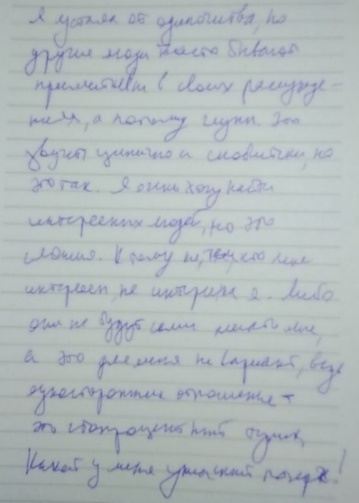 Я устал от одиночества, но
другие люди часто бывают
примитивны в своих рассужде-
ниях, а потому глупы. Это
звучит цинично и снобистски, но
это так. Я очень хочу найти
интересных людей, но это
сложно. К тому же, тем, кто мне
интересен, не интересен я. Либо
они не будут сами писать мне,
а это для меня не вариант, ведь
односторонние отношения -
это стопроцентный тупик.
Какой у меня ужасный почерк!